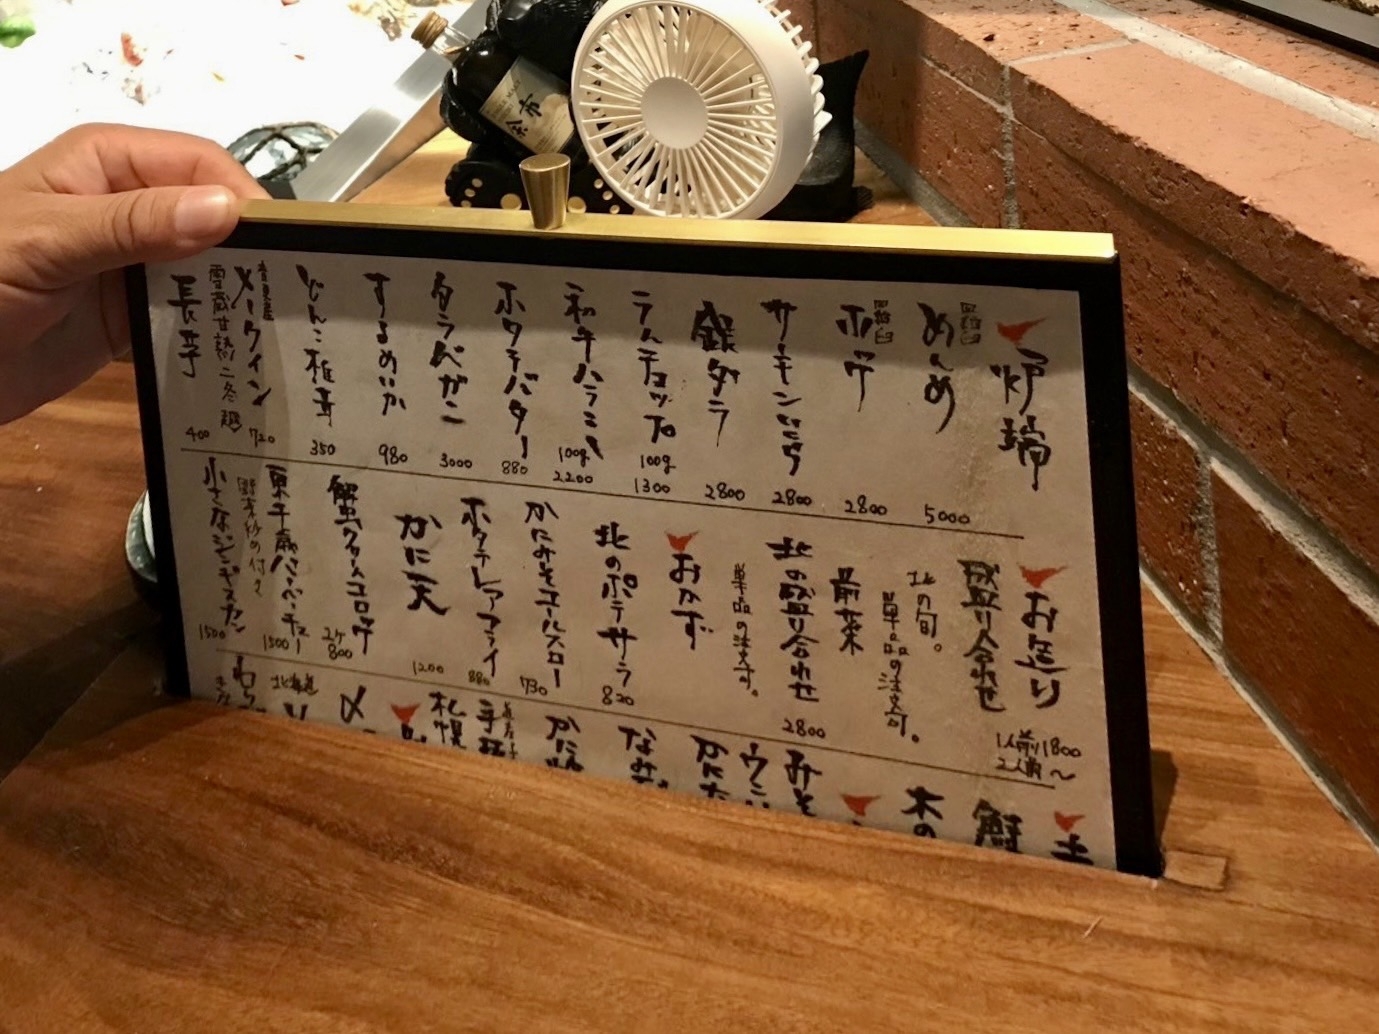 余市
炉端
めんめ
5000
ホッケ
2800
サーモンいくら
2800
銀ダラ
2800
ラムチョップ
100g
1300
和牛ハラミ
100g
2200
ホタテバター
880
タラバガニ
3000
するめいか
980
どんこ椎茸
350
メークイン
雪蔵甘熟二冬越
720
長芋
400
お造り
盛り合わせ
1人前1800
2人前〜
北の旬。
単品の注文可。
前菜
北の盛り合わせ
2800
単品の注文可。
おかず
北のポテサラ
820
かにみそコールスロー
730
ホタテレアフライ
880
かに天
1200
蟹クリームコロッケ
2ケ
800
1500
野菜炒め付き
小さなジンギスカン
1500
鮮
木の
みそ
ウニ
かにた
なみだ
かに
手
札幌
〆
北海道
わら